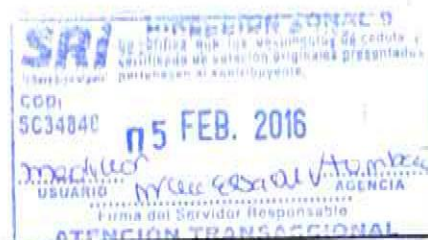 SRI DIRECCION ZONAL 9
Se certifica que los documentos de cedula y
certificado de votación originales presentados
pertenecen al contribuyente.
COD:
SC34840
05 FEB. 2016
USUARIO AGENCIA
Firma del Servidor Responsable
ATENCION TRANSACCIONAL